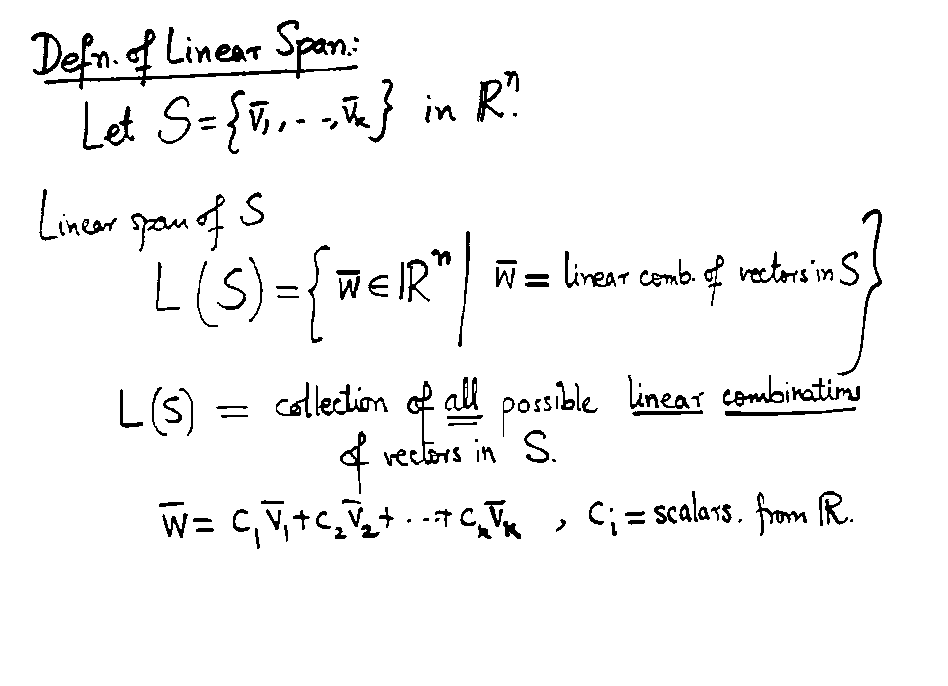 Defn. of Linear Span:
Let S = {v̄₁, . . , v̄ₖ} in ℝⁿ.
Linear span of S
L(S) = { w̄ ∈ ℝⁿ | w̄ = linear comb. of vectors in S }
L(S) = collection of all possible linear combinations
of vectors in S.
w̄ = c₁v̄₁ + c₂v̄₂ + . . . + cₖv̄ₖ , cᵢ = scalars. from ℝ.